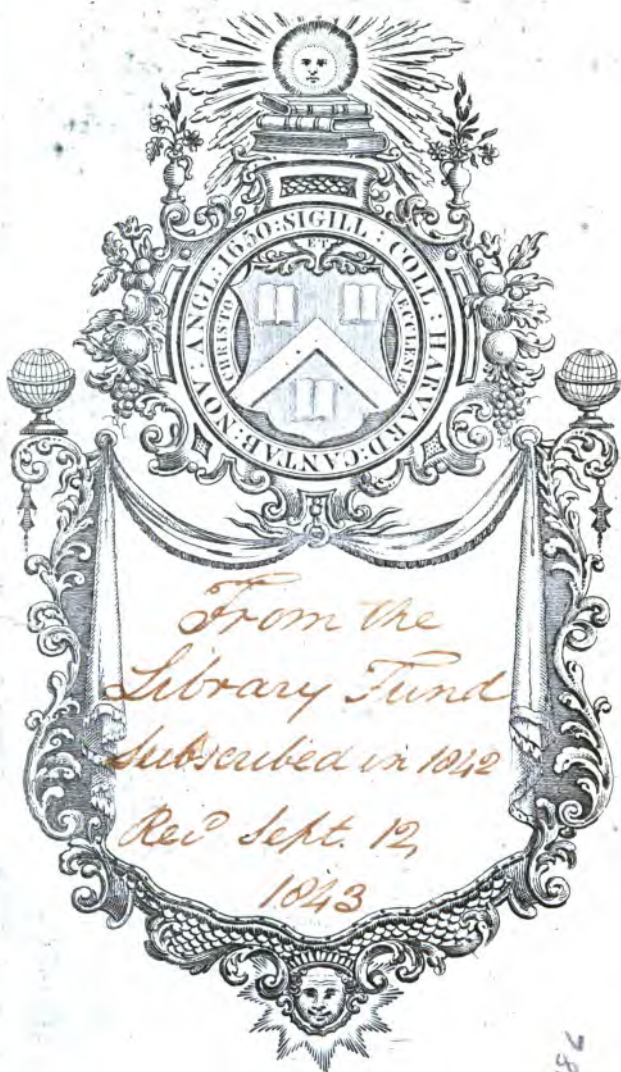 SIGILL : COLL : HARVARD : CANTAB : NOV : ANGL : 1650 :
ET
CHRISTO
ECCLESIÆ
From the
Library Fund
Subscribed in 1842
Rec'd Sept. 12,
1843